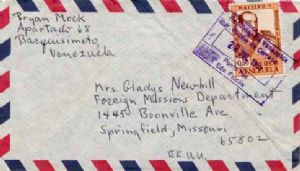 Bryan Mock
Apartado 68
Barquisimeto
Venezuela
Mrs. Gladys Newbill
Foreign Missions Department
1445 Boonville Ave
Springfield, Missouri
65802
EE.UU.
VENEZUELA